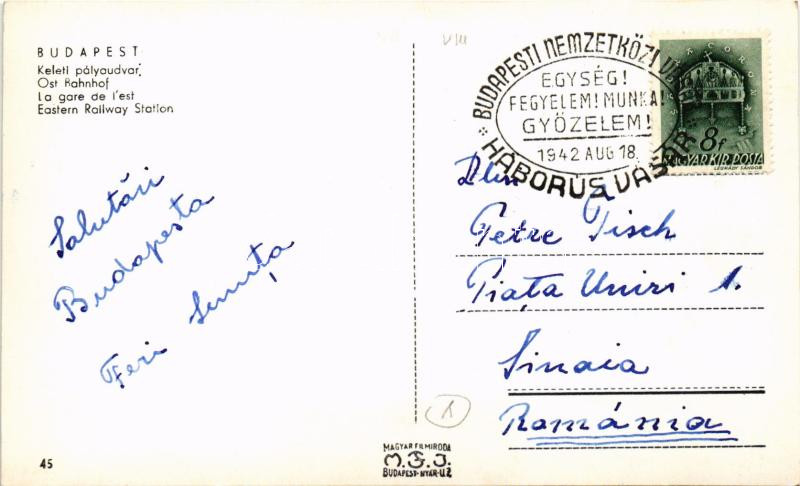 BUDAPEST
Keleti pályaudvar,
Ost Bahnhof
La gare de l'est
Eastern Railway Station
VIII
BUDAPESTI NEMZETKÖZI
EGYSÉG!
FEGYELEM! MUNKA!
GYŐZELEM!
1942 AUG 18.
HÁBORUS VÁSÁR
8f
MAGYAR KIR. POSTA
LÉGRÁDY SÁNDOR
Salutări
Budapesta
Feri
Dlui
Petre Tisch
Piața Unirii 1.
Sinaia
Románia
45
MAGYAR FILMIRODA
M.F.I.
BUDAPEST-NYÁR-U.2